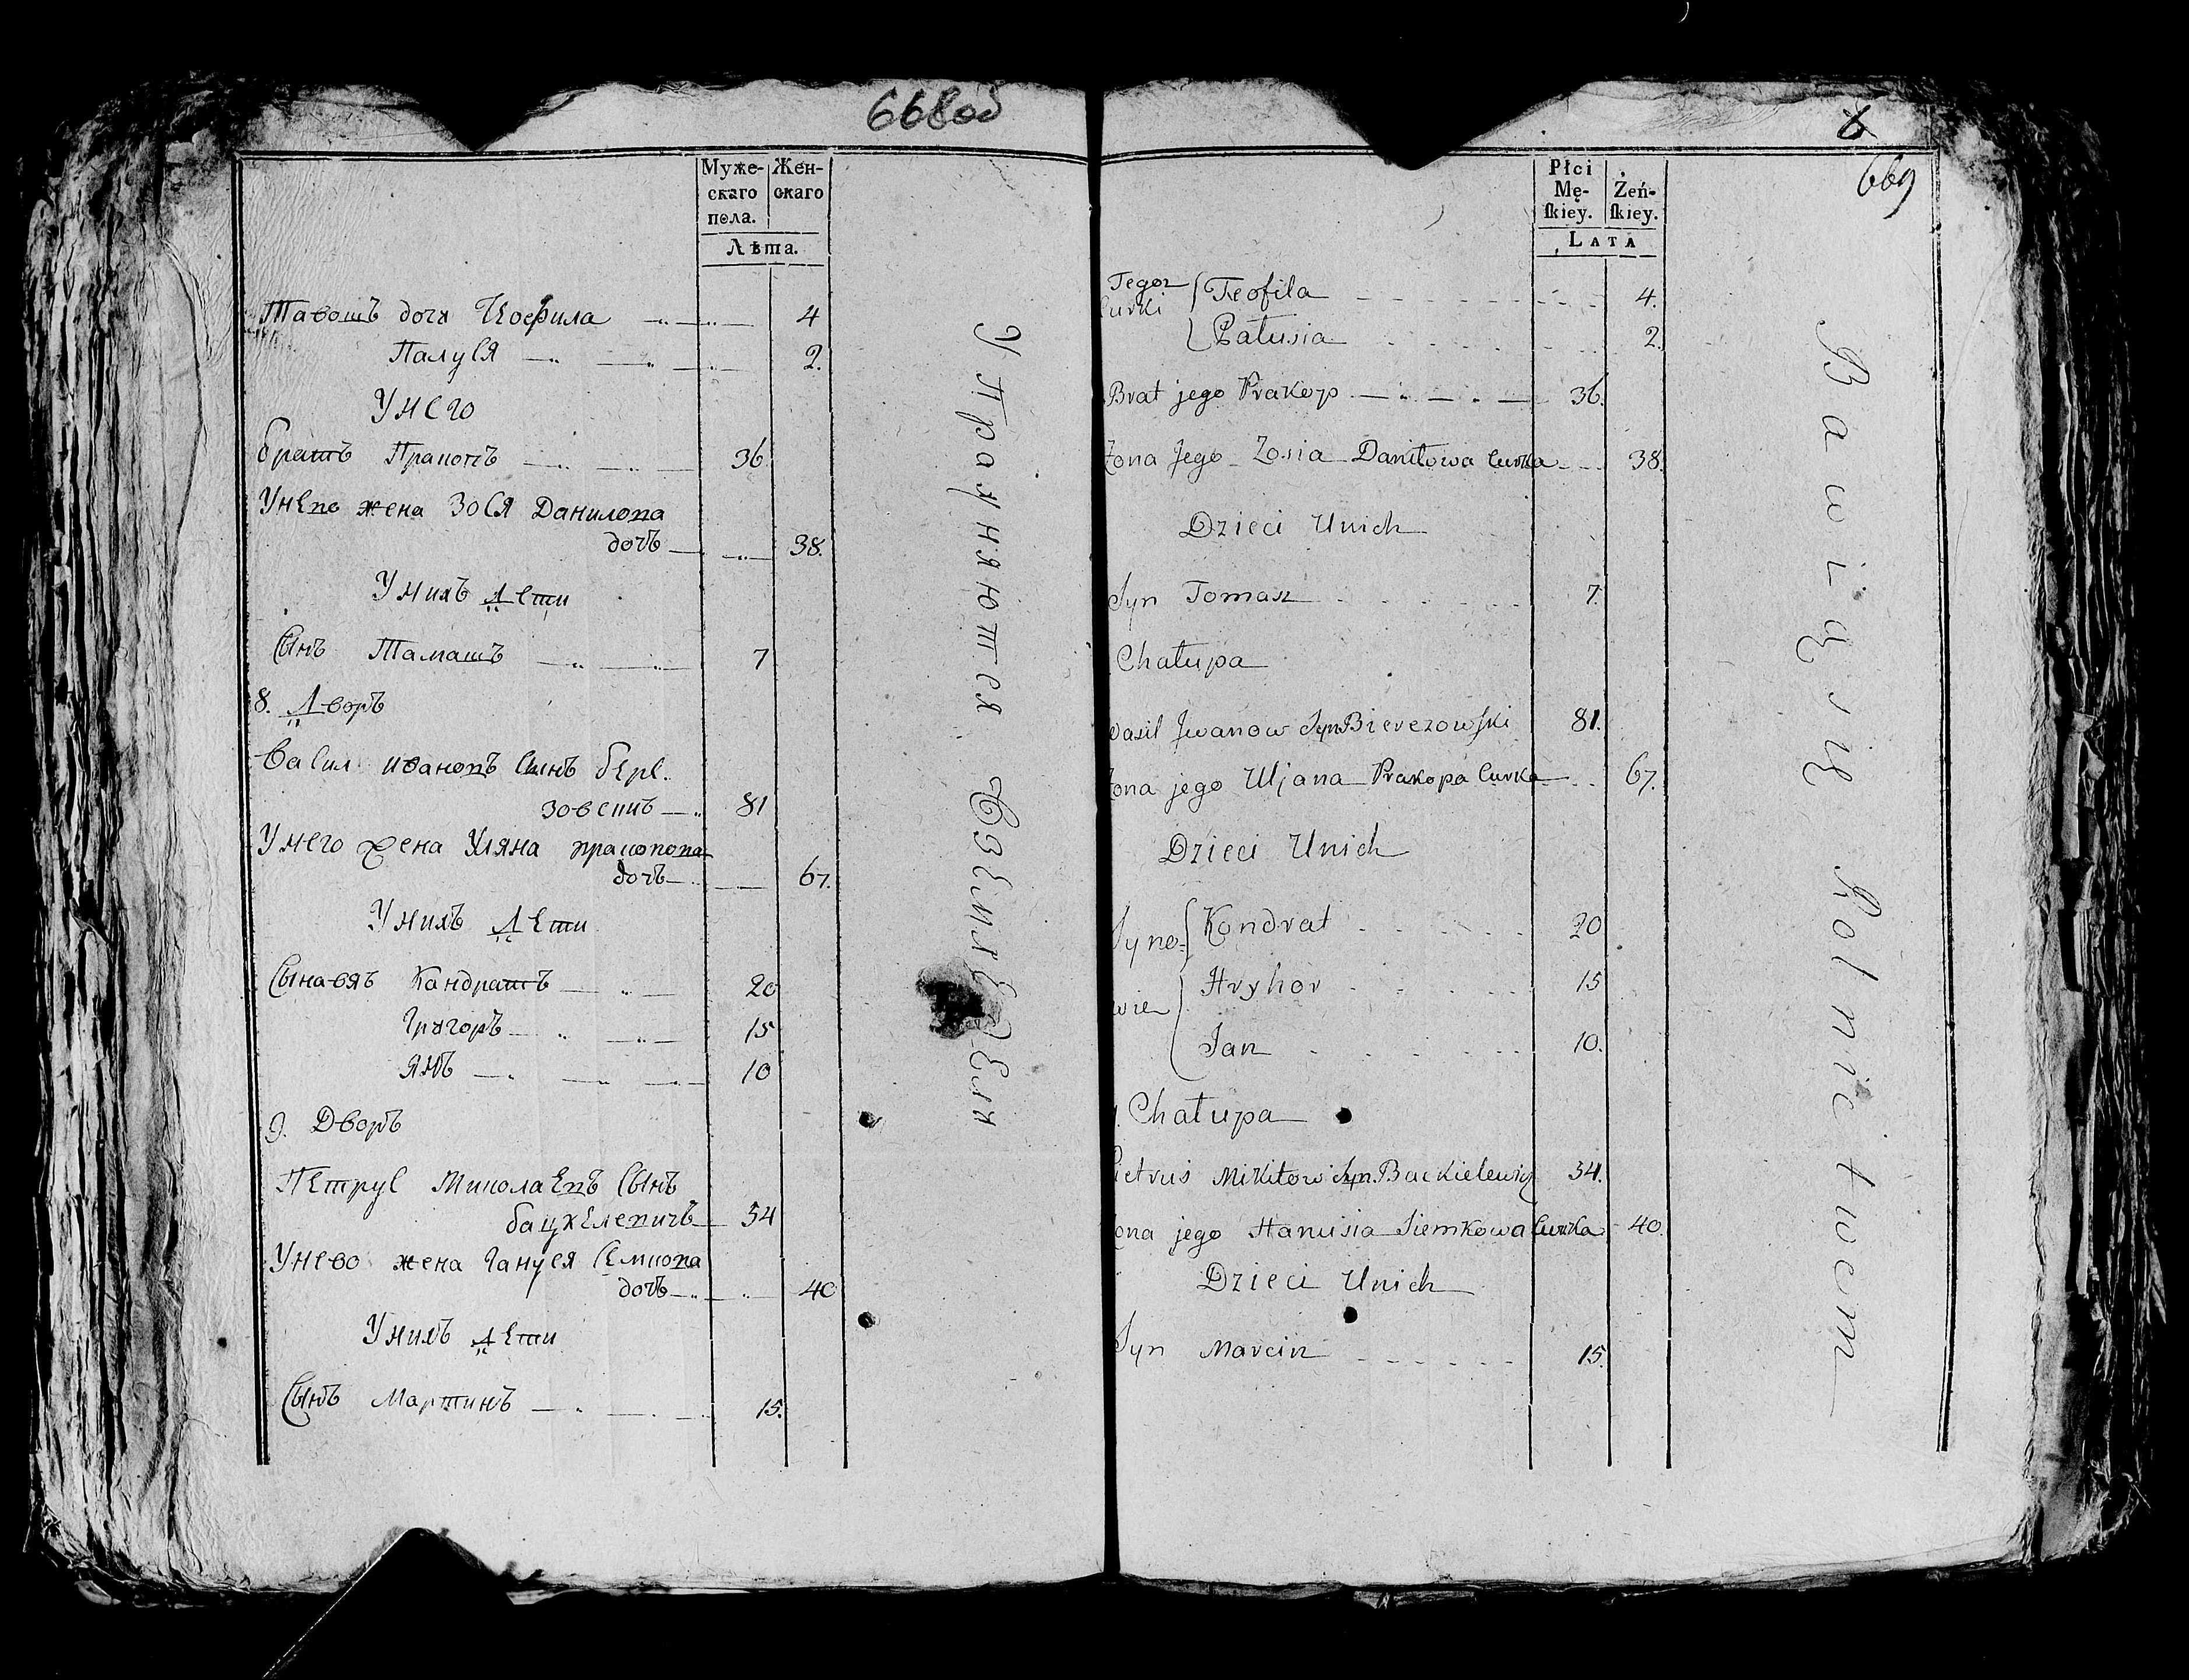 668об
Муже-
скаго
пола.
Жен-
скаго
Лѣта.
Тавошъ доча Цофила 4
Палуся 2.
Унего
братъ Пракопъ 36
Унего жена Зося Данилова
дочъ 38.
Унихъ Дети
Сынъ Тамашъ 7
8. Дворъ
Васил Ивановъ Сынъ бере.
зовскиъ 81
Унего жена Уляна пракопова
дочъ 67.
Унихъ Дети
Сынавяъ Кандратъ 20
Григоръ 15
Янъ 10
9. Дворъ
Петрус Миколаевъ Сынъ
бацкелевичъ 34
Унево жена Гануся Семкова
дочъ 40
Унихъ Дети
Сынъ Мартинъ 15.
Упражняются Вземледелея
6
669
Płci
Mę-
ſkiey.
Żeń-
ſkiey.
Lata
Tegoz Curki Teofila 4.
Pałusia 2.
Brat jego Prakop 36.
Zona Jego Zosia Daniłowa Curka 38.
Dzieci Unich
Syn Tomasz 7.
Chałupa
Wasil Jwanow Syn Bierezowſki 81.
Zona jego Uljana Prakopa Curka 67.
Dzieci Unich
Syno- Kondrat 20
wie Hryhor 15
Jan 10.
Chałupa
Pietruś Mikitow Syn Backielewicz 34.
Zona jego Hanusia Siemkowa Curka 40.
Dzieci Unich
Syn Marcin 15.
Bawiąsię Rolnictwem